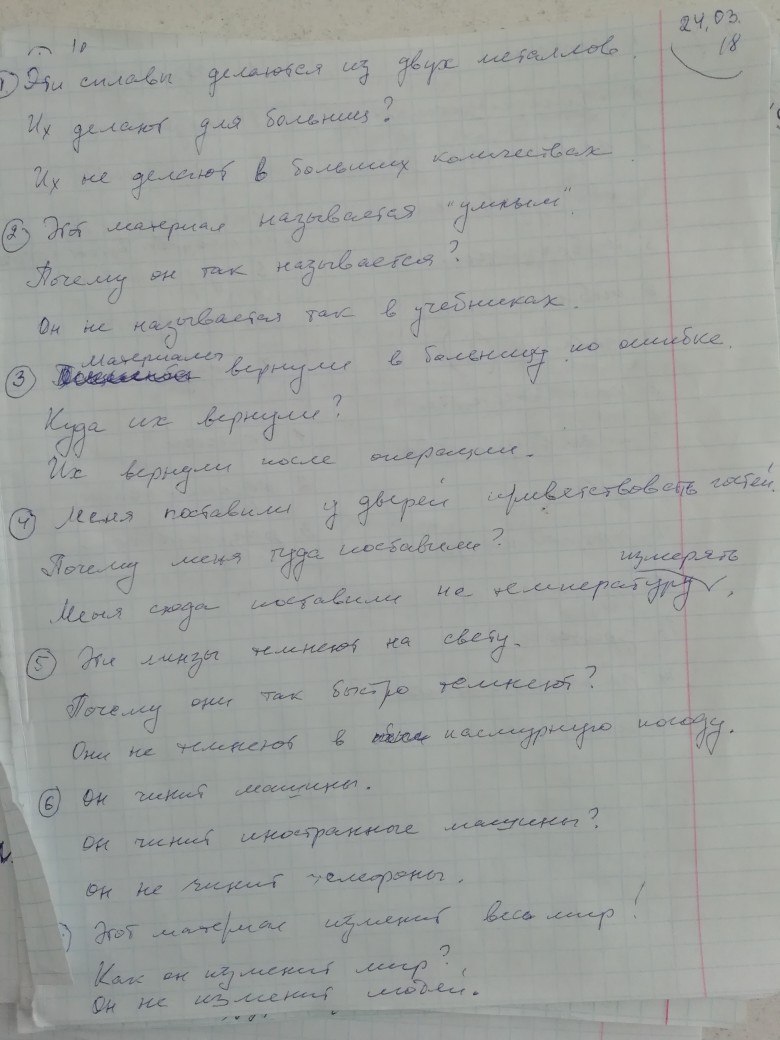 24.03.
18
10
1) Эти сплавы делаются из двух металлов.
Их делают для больниц?
Их не делают в больших количествах
2) Этот материал называется "умным".
Почему он так называется?
Он не называется так в учебниках.
материалы
3) вернули в больницу по ошибке.
Куда их вернули?
Их вернули после операции.
4) Меня поставили у дверей приветствовать гостей.
Почему меня туда поставили?
измерять
Меня сюда поставили на температуру.
5) Эти линзы темнеют на свету.
Почему они так быстро темнеют?
Они не темнеют в пасмурную погоду.
6) Он чинит машины.
Он чинит иностранные машины?
Он не чинит телефоны.
Этот материал изменит весь мир!
Как он изменит мир?
Он не изменит людей.